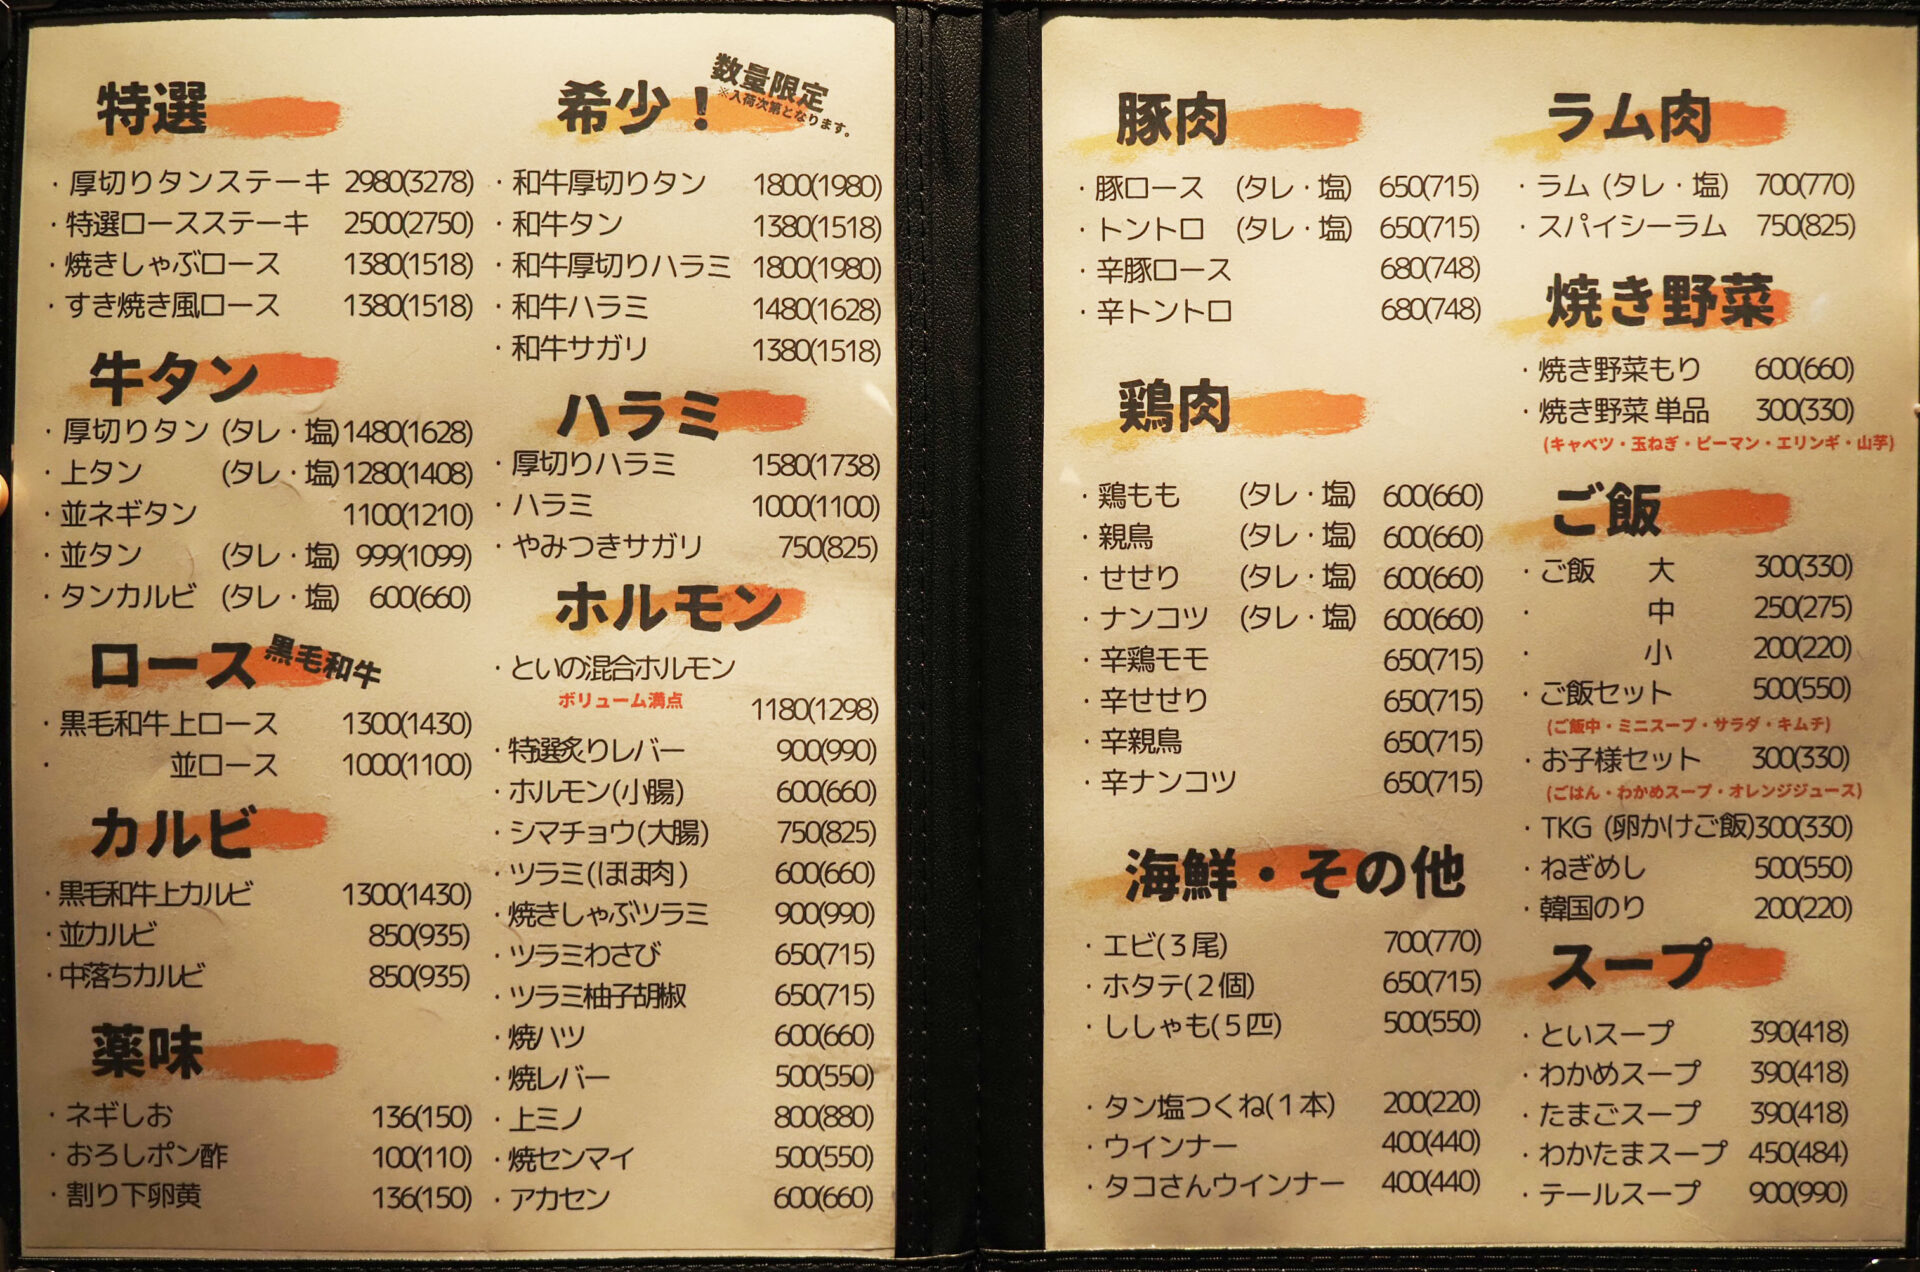 特選
・厚切りタンステーキ 2980(3278)
・特選ロースステーキ 2500(2750)
・焼きしゃぶロース 1380(1518)
・すき焼き風ロース 1380(1518)
牛タン
・厚切りタン (タレ・塩) 1480(1628)
・上タン (タレ・塩) 1280(1408)
・並ネギタン 1100(1210)
・並タン (タレ・塩) 999(1099)
・タンカルビ (タレ・塩) 600(660)
ロース 黒毛和牛
・黒毛和牛上ロース 1300(1430)
・ 並ロース 1000(1100)
カルビ
・黒毛和牛上カルビ 1300(1430)
・並カルビ 850(935)
・中落ちカルビ 850(935)
薬味
・ネギしお 136(150)
・おろしポン酢 100(110)
・割り下卵黄 136(150)
希少！ 数量限定
※入荷次第となります。
・和牛厚切りタン 1800(1980)
・和牛タン 1380(1518)
・和牛厚切りハラミ 1800(1980)
・和牛ハラミ 1480(1628)
・和牛サガリ 1380(1518)
ハラミ
・厚切りハラミ 1580(1738)
・ハラミ 1000(1100)
・やみつきサガリ 750(825)
ホルモン
・といの混合ホルモン
ボリューム満点 1180(1298)
・特選炙りレバー 900(990)
・ホルモン(小腸) 600(660)
・シマチョウ(大腸) 750(825)
・ツラミ(ほほ肉) 600(660)
・焼きしゃぶツラミ 900(990)
・ツラミわさび 650(715)
・ツラミ柚子胡椒 650(715)
・焼ハツ 600(660)
・焼レバー 500(550)
・上ミノ 800(880)
・焼センマイ 500(550)
・アカセン 600(660)
豚肉
・豚ロース (タレ・塩) 650(715)
・トントロ (タレ・塩) 650(715)
・辛豚ロース 680(748)
・辛トントロ 680(748)
鶏肉
・鶏もも (タレ・塩) 600(660)
・親鳥 (タレ・塩) 600(660)
・せせり (タレ・塩) 600(660)
・ナンコツ (タレ・塩) 600(660)
・辛鶏モモ 650(715)
・辛せせり 650(715)
・辛親鳥 650(715)
・辛ナンコツ 650(715)
海鮮・その他
・エビ(３尾) 700(770)
・ホタテ(２個) 650(715)
・ししゃも(５匹) 500(550)
・タン塩つくね(１本) 200(220)
・ウインナー 400(440)
・タコさんウインナー 400(440)
ラム肉
・ラム (タレ・塩) 700(770)
・スパイシーラム 750(825)
焼き野菜
・焼き野菜もり 600(660)
・焼き野菜 単品 300(330)
(キャベツ・玉ねぎ・ピーマン・エリンギ・山芋)
ご飯
・ご飯 大 300(330)
・ 中 250(275)
・ 小 200(220)
・ご飯セット 500(550)
(ご飯中・ミニスープ・サラダ・キムチ)
・お子様セット 300(330)
(ごはん・わかめスープ・オレンジジュース)
・TKG (卵かけご飯) 300(330)
・ねぎめし 500(550)
・韓国のり 200(220)
スープ
・といスープ 390(418)
・わかめスープ 390(418)
・たまごスープ 390(418)
・わかたまスープ 450(484)
・テールスープ 900(990)